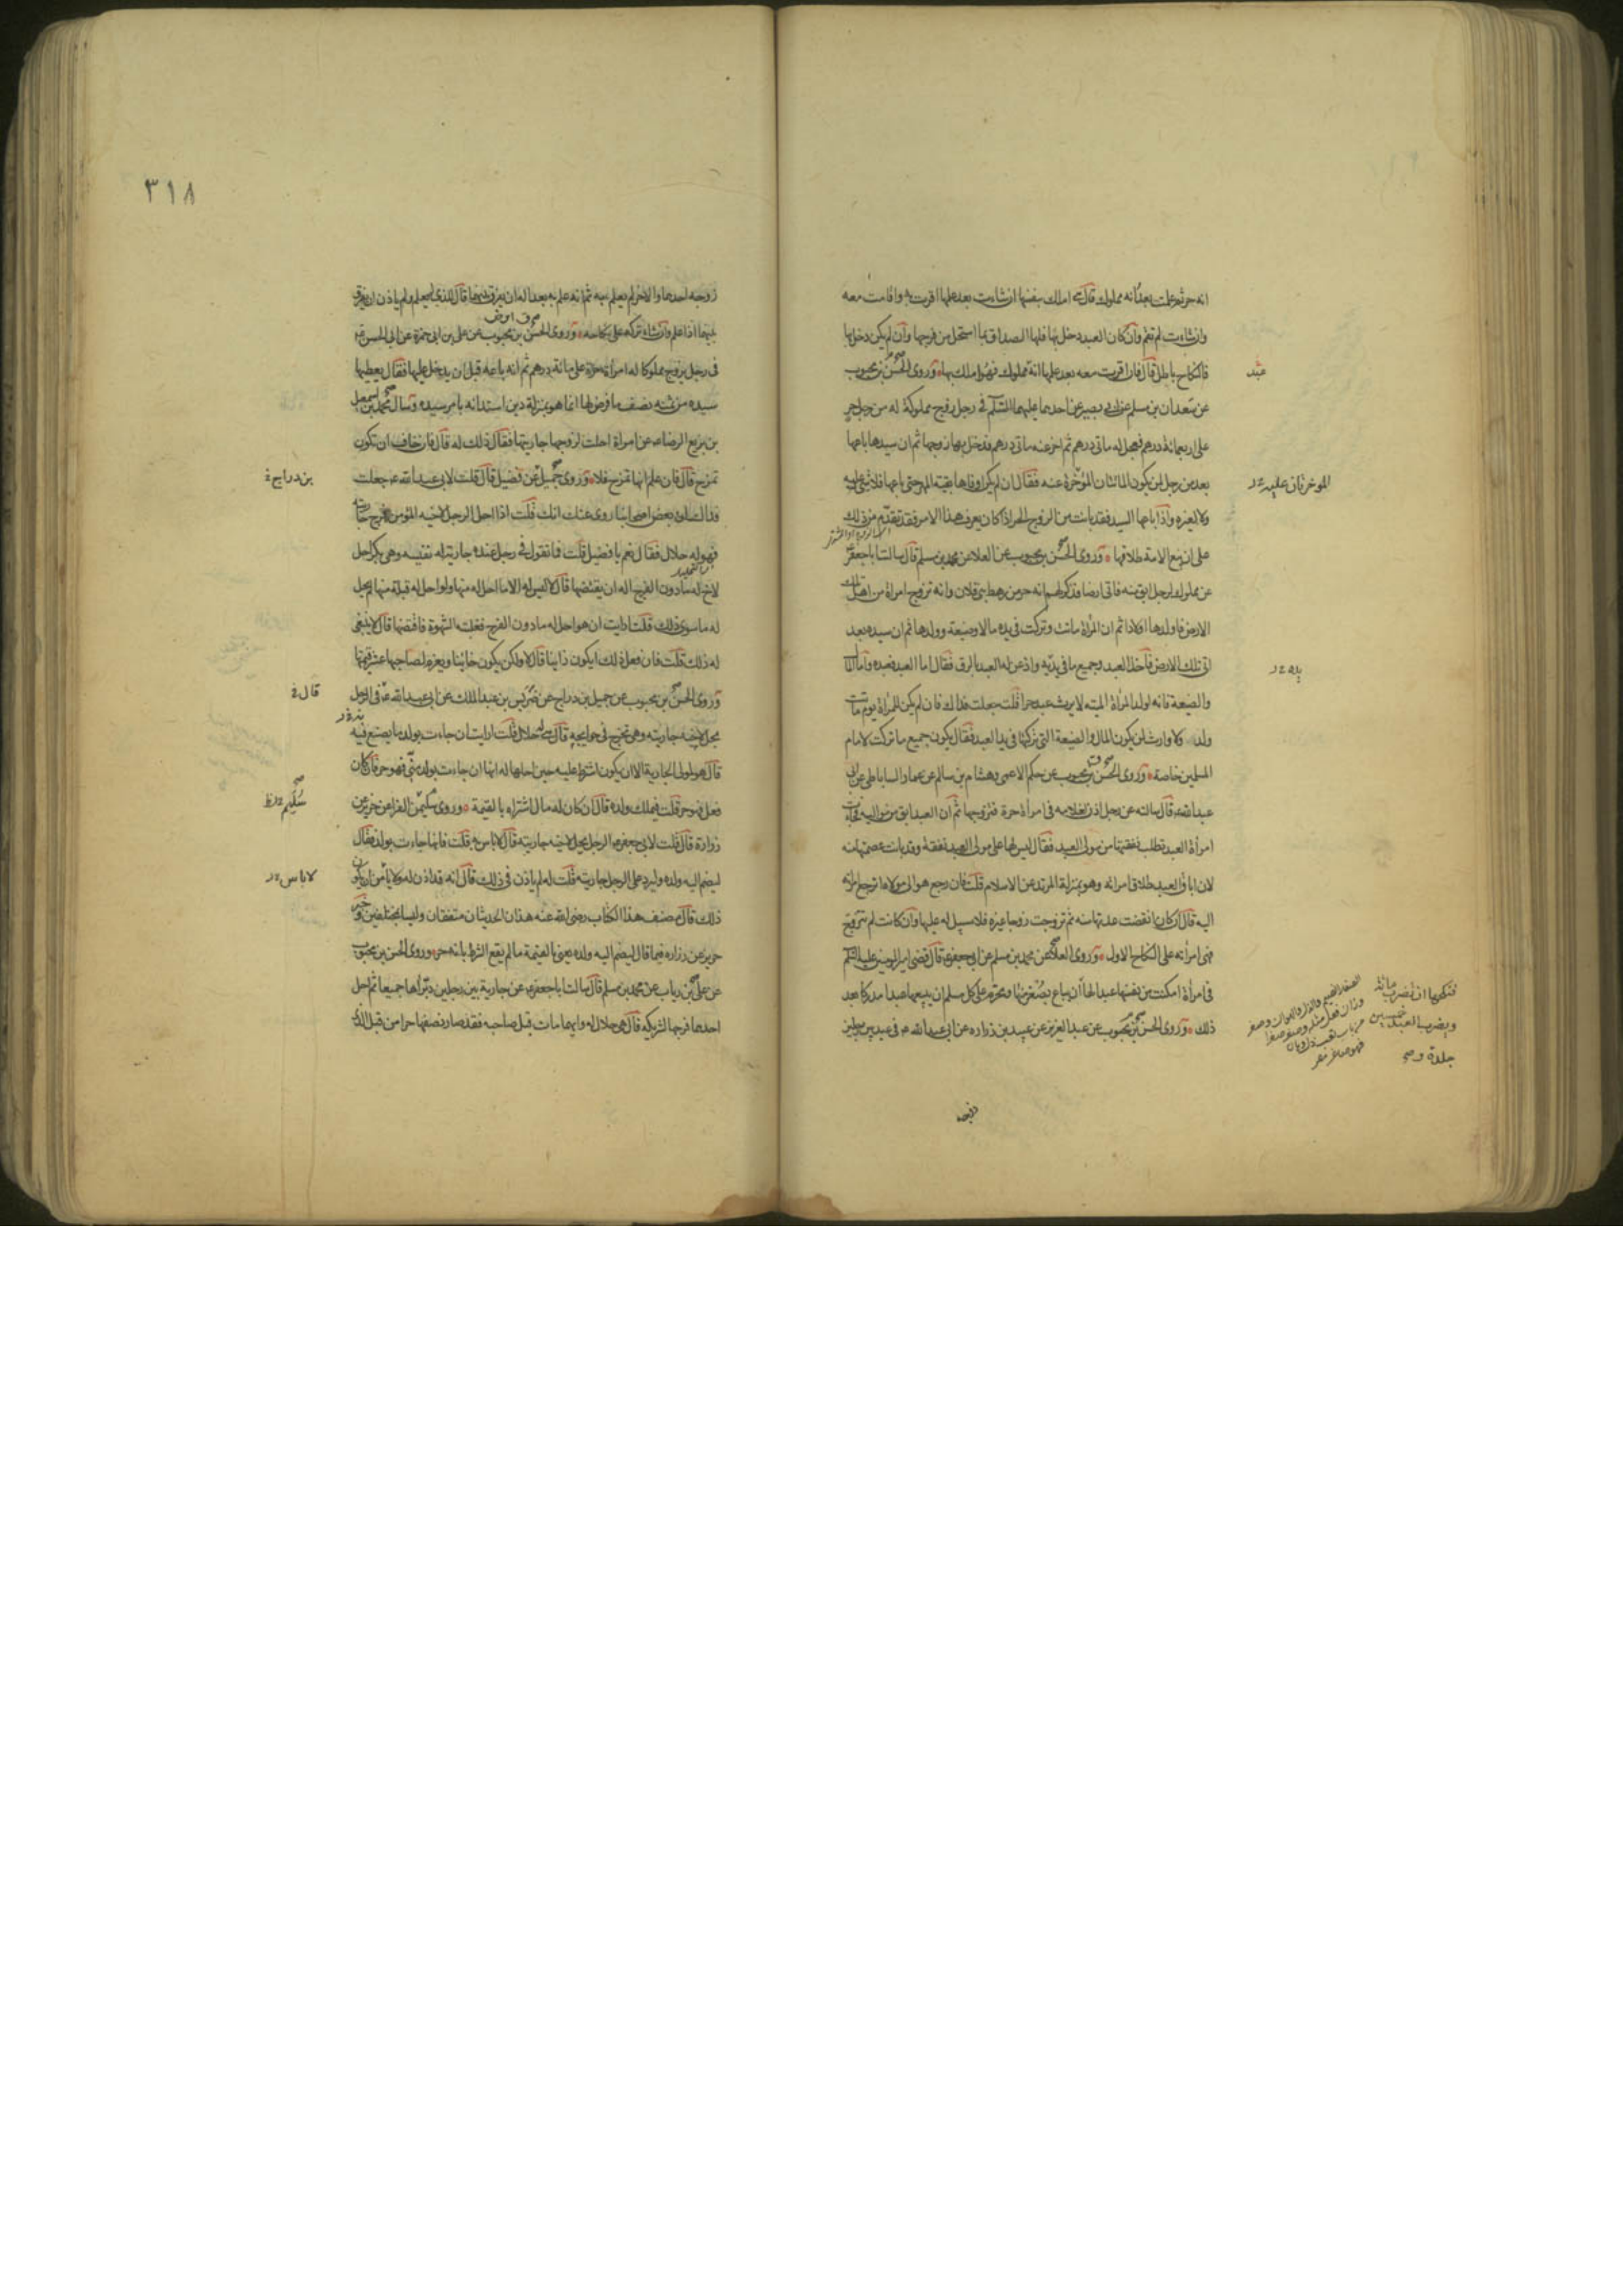 انه حر ثم علمت بعد انه مملوك قال هي املك بنفسها ان شاءت بعد علمها اقرت به واقامت معه
وان شاءت لم تقم وان كان العبد دخل بها فلها الصداق بما استحل من فرجها وان لم يكن دخل بها
فالنكاح باطل قال فان اقرت معه بعد علمها انه مملوك فهو املك بها وروى الحسن بن محبوب
عن سعدان بن مسلم عن ابي بصير عن احدهما عليهما السلم في رجل زوج مملوكة له من رجل حر
على اربعمائة درهم فعجل له مائتي درهم ثم اخر عنه مائتي درهم فدخل بها زوجها ثم ان سيدها باعها
بعد من رجل لمن يكون المائتان المؤخرة عنه فقال ان لم يكن اوفاها بقية المهر حتى باعها فلا شئ عليه
ولا لغيره واذا باعها السيد فقد بانت من الزوج الحر اذا كان يعرف هذا الامر فقد تقدم من ذلك
على ان بيع الامة طلاقها وروى الحسن بن محبوب عن العلا عن محمد بن مسلم قال سالت ابا جعفر ع
عن مملوك لرجل ابق منه فاتى ارضا فذكر لهم انه حر من رهط بني فلان وانه تزوج امراة من اهل تلك
الارض فاولدها اولادا ثم ان المراة ماتت وتركت في يده مالا وضيعة وولدها ثم ان سيده بعد
اتى تلك الارض فاخذ العبد وجميع ما في يديه واذعن له العبد بالرق فقال اما العبد فعبده واما المال
والضيعة فانه لولد المراة الميتة لا يرث عبد حرا قلت جعلت فداك فان لم يكن للمراة يوم ماتت
ولد ولا وارث لمن يكون المال والضيعة التي تركتها في يد العبد فقال يكون جميع ما تركت لامام
المسلمين خاصة وروى الحسن بن محبوب عن حكم الاعمى وهشام بن سالم عن عمار الساباطي عن ابي
عبدالله ع قال سالته عن رجل اذن لغلامه في امراة حرة فتزوجها ثم ان العبد ابق من مواليه فجاءت
امراة العبد تطلب نفقتها من مولى العبد فقال ليس لها على مولى العبد نفقة وقد بانت عصمتها منه
لان اباق العبد طلاق امراته وهو بمنزلة المرتد عن الاسلام قلت فان رجع هو الى مولاه اترجع امراته
اليه قال ان كان انقضت عدتها منه ثم تزوجت زوجا غيره فلا سبيل له عليها وان كانت لم تتزوج
فهي امراته على النكاح الاول وروى العلا عن محمد بن مسلم عن ابي جعفر ع قال قضى امير المومنين عليه السلم
في امراة امكنت من نفسها عبدا لها ان يباع بصغر منها ومحرم على كل مسلم ان يبيعها عبدا مدركا بعد
ذلك وروى الحسن بن محبوب عن عبد العزيز عن عبيد بن زرارة عن ابي عبدالله ع في عبد بين رجلين
عبد
المؤخرتان عليه
يده
فنكحها ان تضرب مائة
ويضرب العبد خمسين
جلدة
زوجه
٣١٨
زوجه احدهما والاخر لم يعلم به ثم انه علم به بعد اله ان يفرق بينهما قال للذي لم يعلم ولم ياذن ان يفرق
بينهما اذا علم وان شاء تركه على نكاحه وروى الحسن بن محبوب عن علي بن ابي حمزة عن ابي الحسن ع
في رجل يزوج مملوكا له امراة حرة على مائة درهم ثم انه باعه قبل ان يدخل عليها فقال يعطيها
سيده من ثمنه نصف ما فرض لها انما هو بمنزلة دين استدانه بامر سيده وسال محمد بن اسمعيل
بن بزيع الرضا ع عن امراة احلت لزوجها جاريتها فقال ذلك له قال فان خاف ان تكون
تمزح قال فان علم انها تمزح فلا وروى جميل عن فضيل قال قلت لابي عبدالله ع جعلت
فداك ان بعض اصحابنا روى عنك انك قلت اذا احل الرجل لاخيه المؤمن فرج جاريته
فهو له حلال فقال نعم يا فضيل قلت فما تقول في رجل عنده جارية له نفيسة وهي بكر احل
لاخ له ما دون الفرج اله ان يفتضها قال لا ليس له الا ما احل له منها ولو احل له قبلة منها لم يحل
له ما سوى ذلك قلت ارايت ان هو احل له ما دون الفرج فغلبته الشهوة فافتضها قال لا ينبغي
له ذلك قلت فان فعل ذلك ايكون زانيا قال لا ولكن يكون خائنا ويغرم لصاحبها عشر قيمتها
وروى الحسن بن محبوب عن جميل بن دراج عن ضريس بن عبد الملك عن ابي عبدالله ع في الرجل
يحل لاخيه جاريته وهي تخرج في حوائجه قال هي له حلال قلت ارايت ان جاءت بولد ما يصنع فيه
قال هو لمولى الجارية الا ان يكون اشترط عليه حين احلها له انها ان جاءت بولد مني فهو حر فان كان
فعل فهو حر قلت فيملك ولده قال ان كان له مال اشتراه بالقيمة وروى سليمن الفرا عن حريز عن
زرارة قال قلت لابي جعفر ع الرجل يحل لاخيه جاريته قال لا باس به قلت فانها جاءت بولد فقال
ليضم اليه ولده وليرد على الرجل جاريته قلت له لم ياذن في ذلك قال انه قد اذن له ولا يامن ان يكون
ذلك قال مصنف هذا الكتاب رضي الله عنه هذان الحديثان متفقان وليسا بمختلفين وخبر
حريز عن زرارة فيما قال ليضم اليه ولده يعني بالقيمة ما لم يقع الشرط بانه حر وروى الحسن بن محبوب
عن علي بن رياب عن محمد بن مسلم قال سالت ابا جعفر ع عن جارية بين رجلين دبراها جميعا ثم احل
احدهما فرجها لشريكه قال هي حلال له وايهما مات قبل صاحبه فقد صار نصفها حرا من قبل الذي
بن دراج
قال
سليم
لا باس